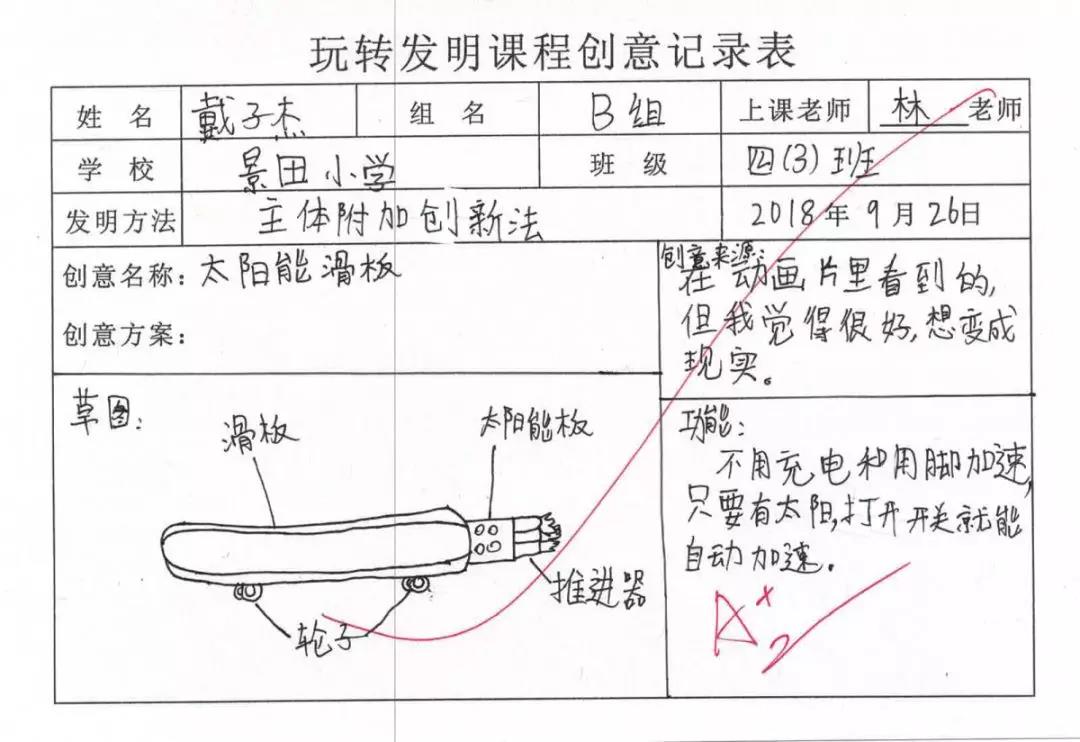 玩转发明课程创意记录表
姓 名 戴子杰 组 名 B组 上课老师 林 老师
学 校 景田小学 班 级 四(3)班
发明方法 主体附加创新法 2018年9月26日
创意名称：太阳能滑板
创意方案：
创意来源：
在动画片里看到的,
但我觉得很好,想变成
现实。
草图：
滑板
太阳能板
推进器
轮子
功能：
不用充电和用脚加速,
只要有太阳,打开开关就能
自动加速。
A+
2